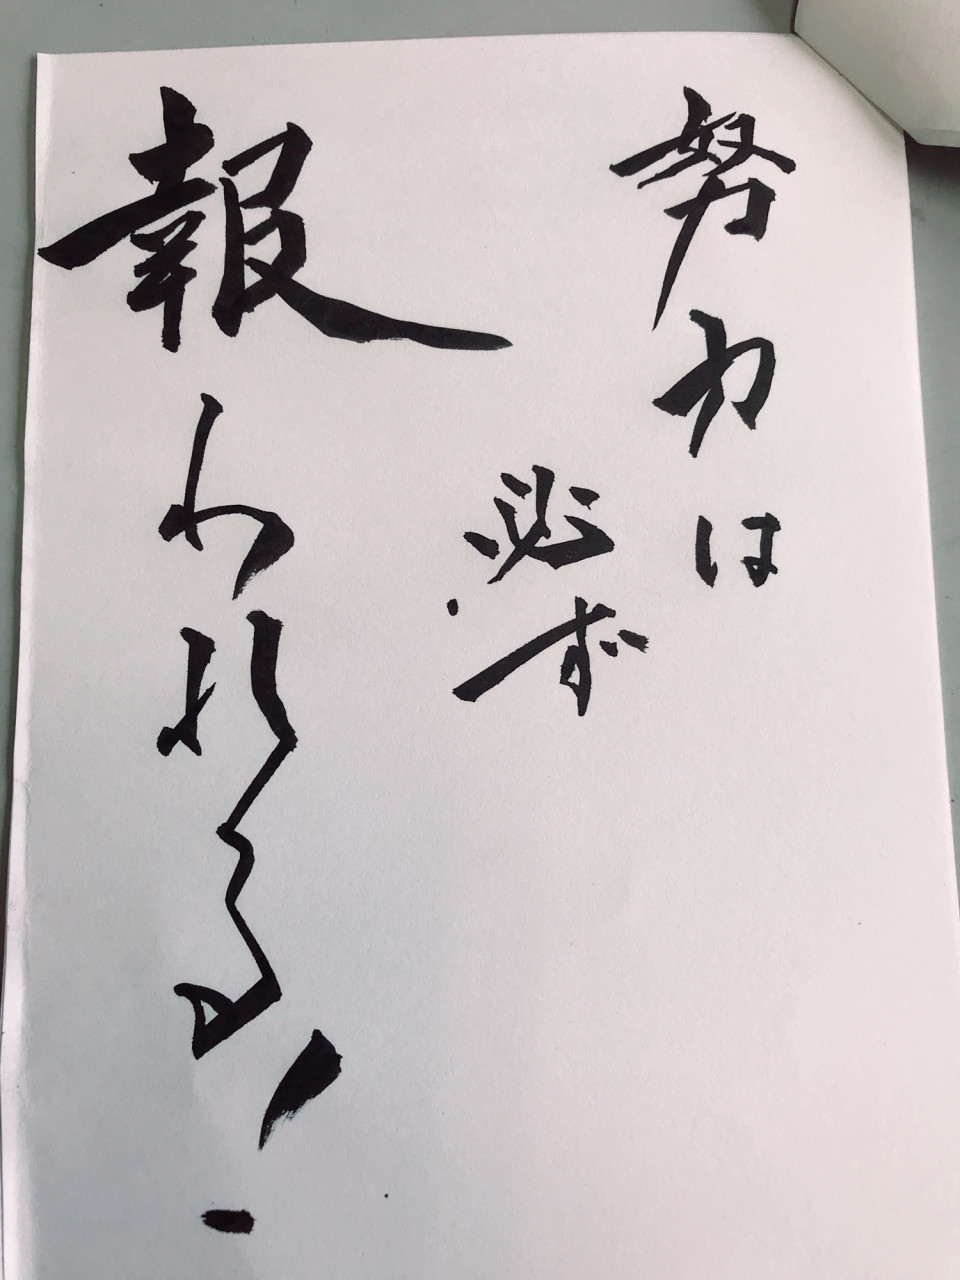 努力は
必ず
報われる!